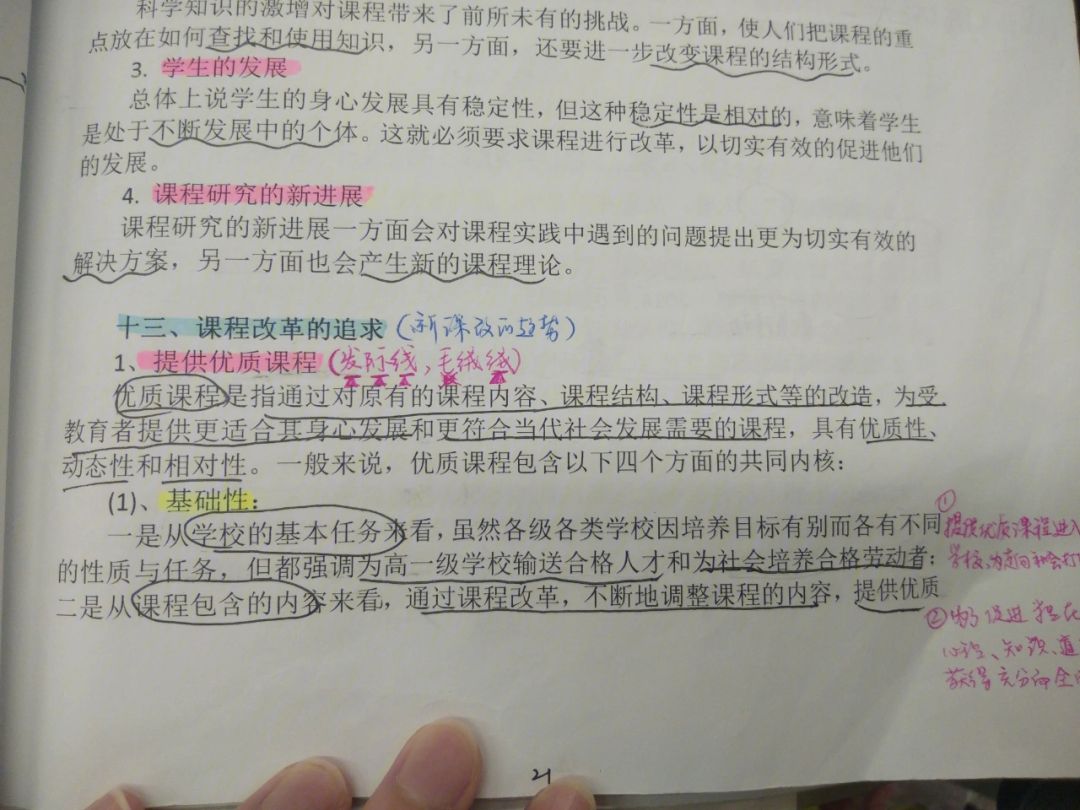 科学知识的激增对课程带来了前所未有的挑战。一方面，使人们把课程的重
点放在如何查找和使用知识，另一方面，还要进一步改变课程的结构形式。
3. 学生的发展
总体上说学生的身心发展具有稳定性，但这种稳定性是相对的，意味着学生
是处于不断发展中的个体。这就必须要求课程进行改革，以切实有效的促进他们
的发展。
4. 课程研究的新进展
课程研究的新进展一方面会对课程实践中遇到的问题提出更为切实有效的
解决方案，另一方面也会产生新的课程理论。
十三、课程改革的追求（新课改的趋势）
1、提供优质课程（发际线，毛绒绒）
优质课程是指通过对原有的课程内容、课程结构、课程形式等的改造，为受
教育者提供更适合其身心发展和更符合当代社会发展需要的课程，具有优质性、
动态性和相对性。一般来说，优质课程包含以下四个方面的共同内核：
(1)、基础性：
一是从学校的基本任务来看，虽然各级各类学校因培养目标有别而各有不同
的性质与任务，但都强调为高一级学校输送合格人才和为社会培养合格劳动者；
二是从课程包含的内容来看，通过课程改革，不断地调整课程的内容，提供优质
①
提供优质课程进入
学校，为走向社会打
②为了促进学生在
心理、知识、道
获得充分的全
21